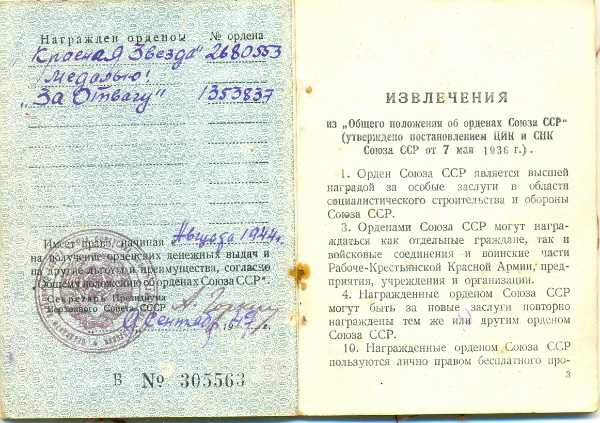 Награжден орденом № ордена
"Красная Звезда" 2680553
Медалью:
"За Отвагу" 1353837
Имеет право, начиная с Августа 1944 г.
на получение орденских денежных выдач и
на другие льготы и преимущества, согласно
„Общему положению об орденах Союза ССР“.
Секретарь Президиума
Верховного Совета СССР
Сентябр 19 г.
В № 305563
ИЗВЛЕЧЕНИЯ
из „Общего положения об орденах Союза ССР“
(утверждено постановлением ЦИК и СНК
Союза ССР от 7 мая 1936 г.).
1. Орден Союза ССР является высшей
наградой за особые заслуги в области
социалистического строительства и обороны
Союза ССР.
3. Орденами Союза ССР могут награ-
ждаться как отдельные граждане, так и
войсковые соединения и воинские части
Рабоче-Крестьянской Красной Армии, пред-
приятия, учреждения и организации.
4. Награжденные орденом Союза ССР
могут быть за новые заслуги повторно
награждены тем же или другим орденом
Союза ССР.
10. Награжденные орденом Союза ССР
пользуются лично правом бесплатного про-
3